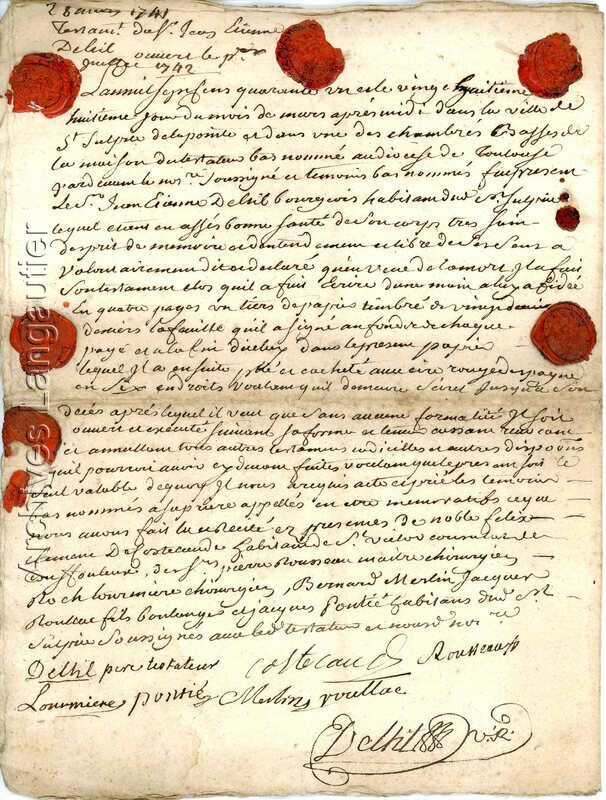 28 mars 1741
Testam.t du S.r Jean Etienne
Delhil ouvert le p.er
juillet 1742
L'an mil sept cens quarante un et le vingt huitieme
huitieme jour du mois de mars après midi dans la ville de
S.t Sulpice de la pointe et dans une des chambres basses de
la maison du testateur bas nommé au diocese de Toulouse
pardevant le no.re soussigné et temoins bas nommés fut present
le S.r Jean Etienne Delhil bourgeois habitant dud. S.t Sulpice
lequel etant en assés bonne santé de son corps tres sain
d'esprit de memoire et d'entendement et libre de ses sens a
volontairement dit et declaré qu'en vue de la mort Il a fait
son testament clos qu'il a fait ecrire d'une main a luy affidée
en quatre pages un tiers de papier timbré de vingt deniers
deniers la feuille qu'il a signé au fonds de chaque
page et a la fin d'icelles dans le present papier
lequel Il a ensuite plié et cacheté avec cire rouge d'espagne
en six endroits voulant qu'il demeure secret jusques a son
décés après lequel il veut que sans aucune formalité Il soit
ouvert et exécuté suivant sa forme et teneur cassant
et annullant tous autres testamens codicilles et autres dispo͠ns
qu'il pourroit avoir cy devant faites voulant que le present soit le
seul valable dequoy Il nous a requis acte et prié les temoins
bas nommés à sa priere appellés en etre memoratifs ce que
nous avons fait lu et recité ez presences de noble felix
de Costecaude habitant de S.t Victor
des S.rs pierre Rousseau maitre chirurgien
Roch Lourmiere chirurgien, Bernard Merlin Jacques
Roullac fils boulanger et jacques pontié habitans dud. S.t
Sulpice soussignés avec led. testateur et nous no.re
Delhil pere testateur Costecaude Rousseau
Lourmiere pontié Merlin roullac
Delhil